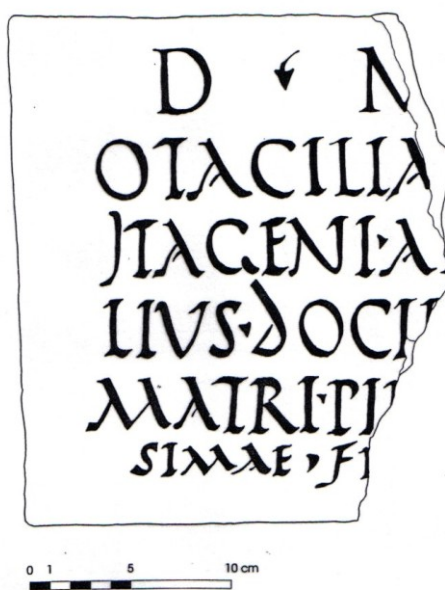 D M
OTACILIA
ITAGENI·A
LIVS·DOCIL
MATRI·PII
SIMAE · F
0 1 5 10 cm